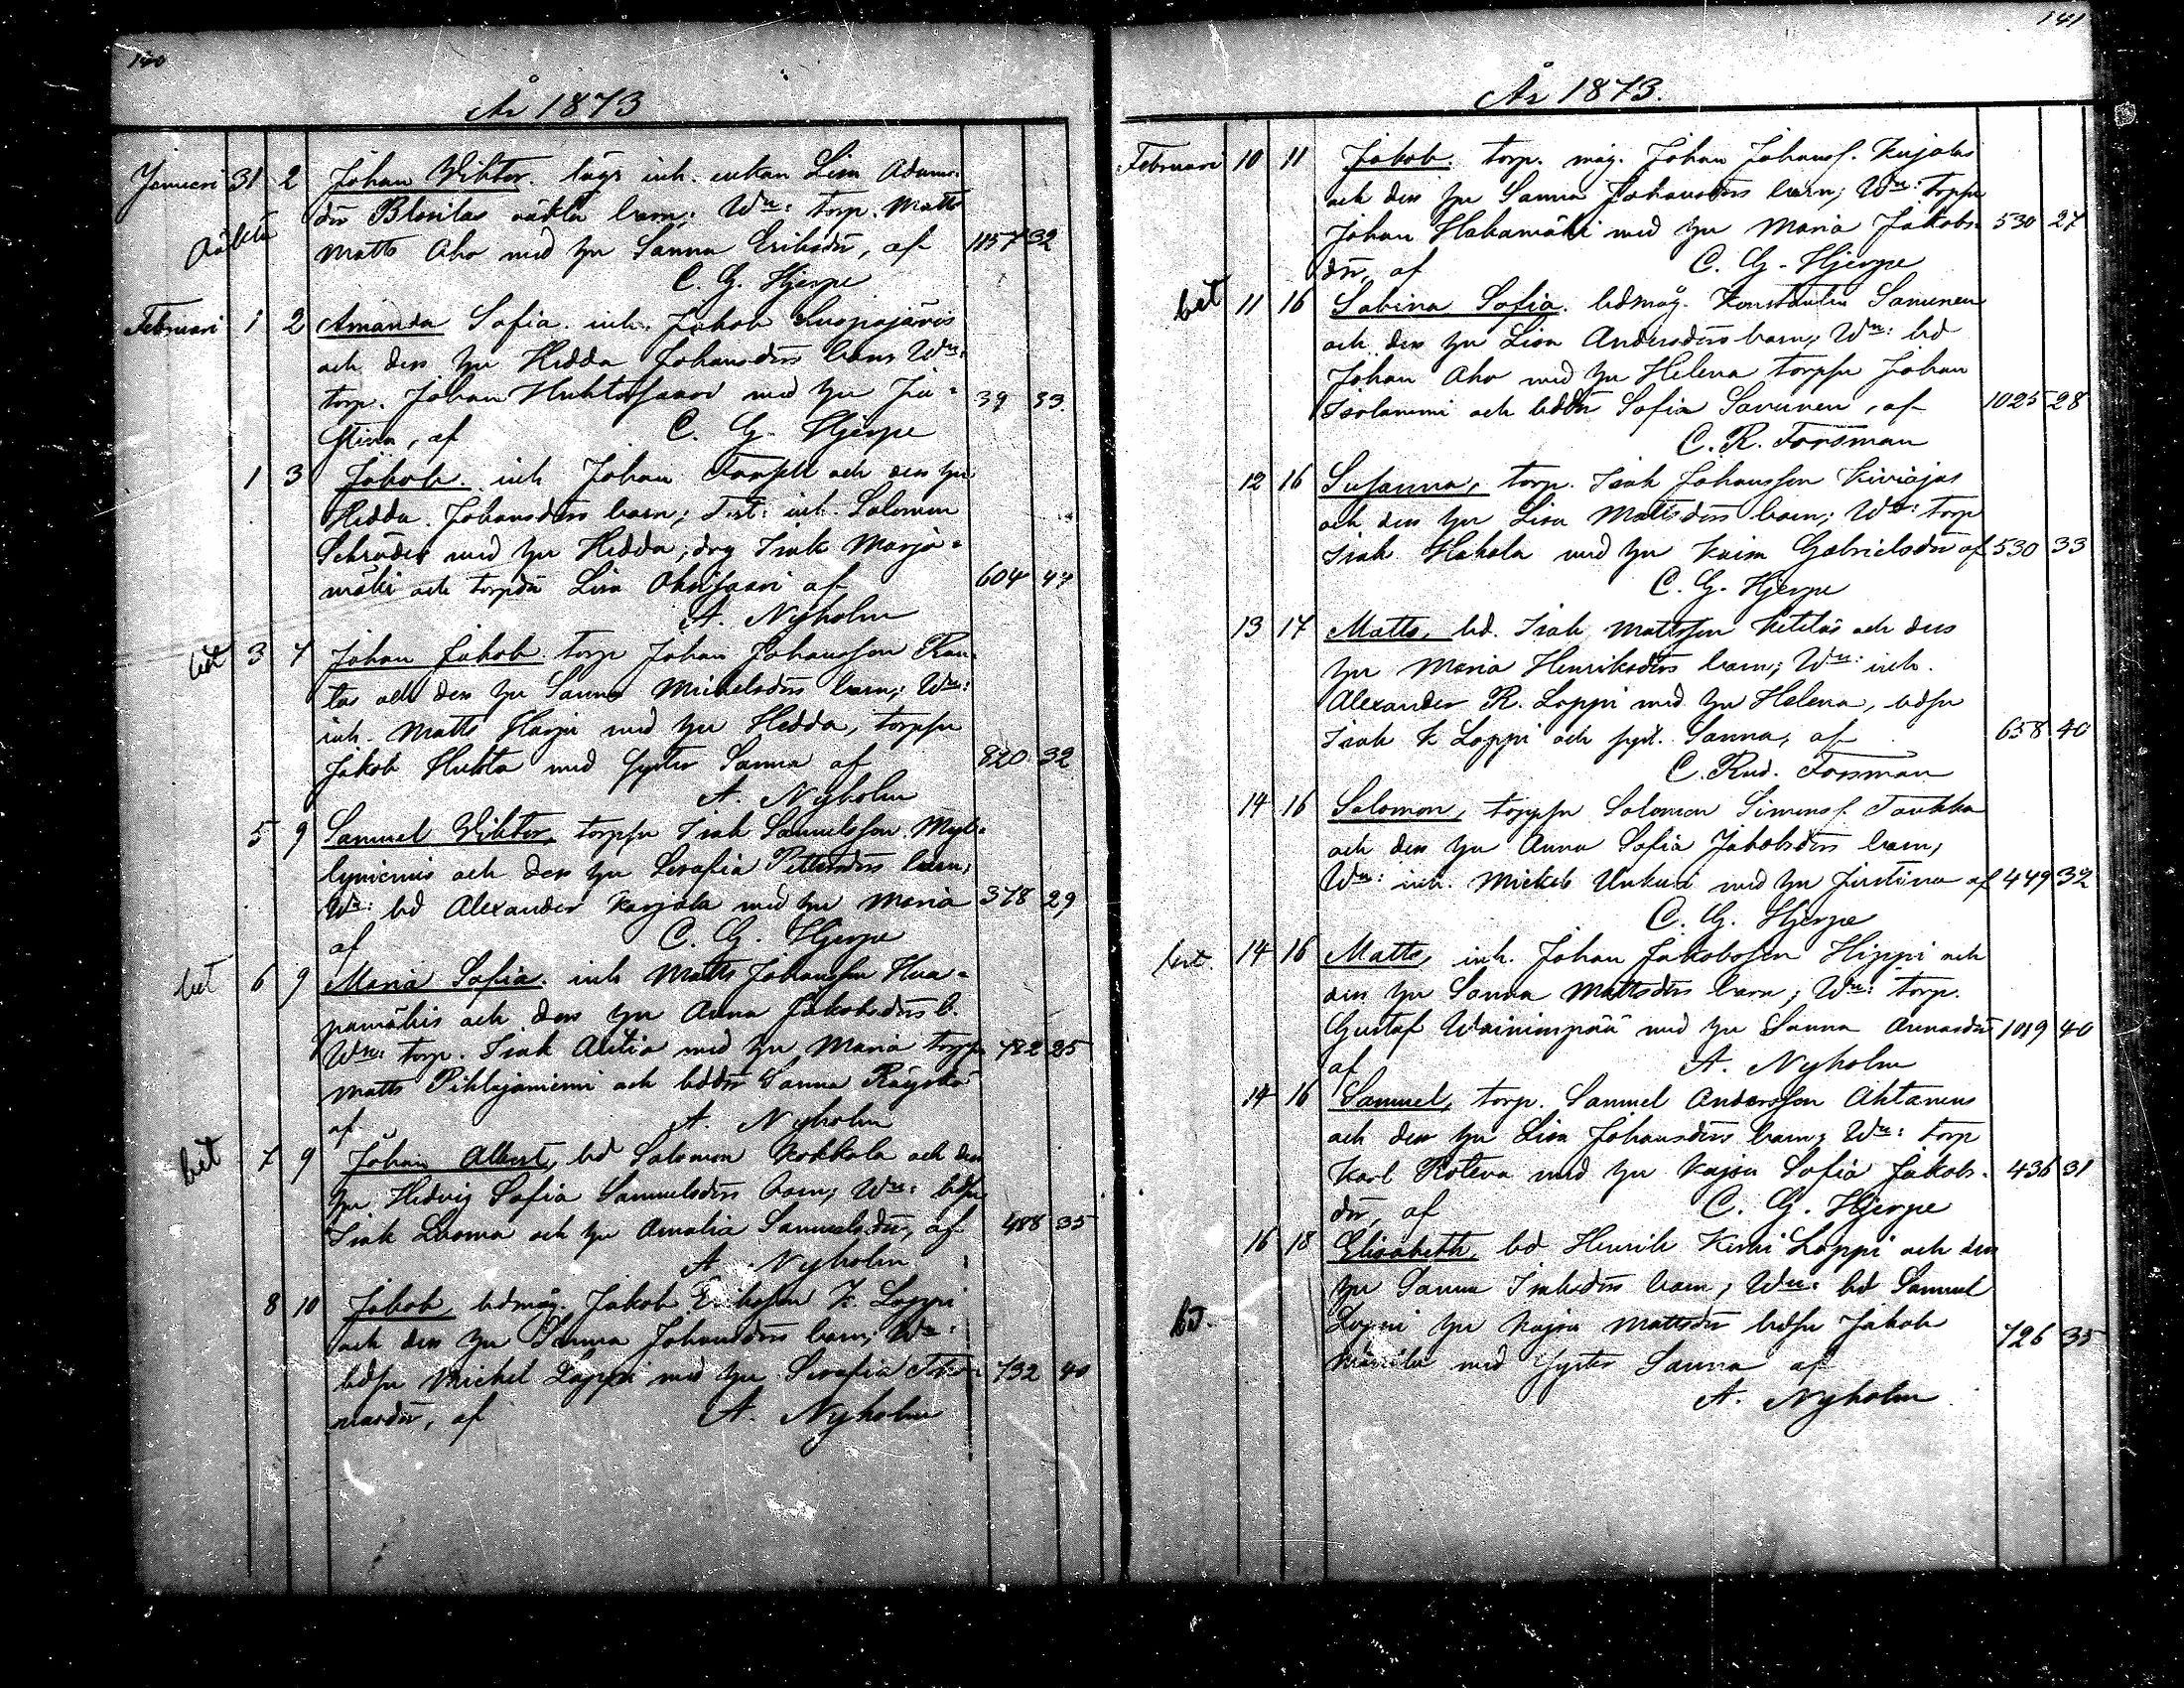 140
År 1873
Januari 31 2 Johan Viktor. lägr inh. enkan Lisa Adams-
oäkta dtr Blosilas oäkta barn; Wn: torp. Matts
Matts Aho med hu Sanna Eriksdtr, af 1157 32
C. G. Hjerpe
Februari 1 2 Amanda Sofia. inh. Jakob Luopajärvis
och dess hu Hedda Johansdtrs barn Wn:
torp. Johan Huhtasaari med hu Ju- 39 33
stina, af C. G. Hjerpe
1 3 Jakob. inh Johan Forsell och dess hu
Hedda Johansdtrs barn; Test: inh. Salomon
Schröder med hu Hedda; drg Isak Marja-
mäki och torpdtr Lisa Oksasaari af 604 44
A. Nyholm
bet 3 7 Johan Jakob. torp Johan Johansson Ran-
tas och dess hu Sanna Michelsdtrs barn; Wn:
inh. Matts Harju med hu Hedda, torpsn
Jakob Huhta med syster Sanna af 820 32
A. Nyholm
5 9 Samuel Viktor, torpsn Isak Samuelsson Myl-
lyniemis och dess hu Serafia Pettersdtrs barn;
Wn: bd Alexander Karjala med hu Maria 378 29
af C. G. Hjerpe
bet 6 9 Maria Sofia. inh Matts Johansson Haa-
pamäkis och dess hu Anna Jakobsdtrs b.
Wn: torp. Isak Autio med hu Maria torpsn 722 25
Matts Pihlajaniemi och bddtr Sanna Röyskö
af A. Nyholm
bet 7 9 Johan Albert, bd Salomon Kokkola och dess
hu Hedvig Sofia Samuelsdtrs barn; Wn: bdsn
Isak Luoma och hu Amalia Samuelsdtr, af 488 35
A. Nyholm
8 10 Jakob, bdmåg. Jakob Eriksson K. Loppi
och dess hu Sanna Johansdtrs barn; Wn:
bdsn Michel Loppi med hu Serafia Tho- 732 40
masdtr, af A. Nyholm
141
År 1873.
Februari 10 11 Jakob. torp. måg. Johan Johanss. Kujalas
och dess hu Sanna Johansdtrs barn; Wn: torpsn
Johan Hakamäki med hu Maria Jakobs- 530 27
dtr, af C. G. Hjerpe
bet 11 16 Sabina Sofia. bdmåg. Konstantin Savunen
och dess hu Lisa Andersdtrs barn; Wn: bd
Johan Aho med hu Helena torpsn Johan
Isolammi och bddtr Sofia Savunen, af 1025 28
C. R. Forsman
12 16 Susanna, torp. Isak Johansson Kiviojas
och dess hu Lisa Mattsdtrs barn; Wn: torp
Isak Hakola med hu Kaisa Gabrielsdtr af 530 33
C. G. Hjerpe
13 17 Matts, bd. Isak Mattsson Ketelas och dess
hu Maria Henriksdtrs barn; Wn: inh.
Alexander R. Loppi med hu Helena, bdsn
Isak K Loppi och syst. Sanna, af 658 40
C. Rud. Forsman
14 16 Salomon, torpsn Salomon Simonss. Toukka
och dess hu Anna Sofia Jakobsdtrs barn;
Wn: inh. Mickel Unkuri med hu Justina af 449 32
C. G. Hjerpe
bet. 14 16 Matts, inh. Johan Jakobsson Hippi och
dess hu Sanna Mattsdtrs barn; Wn: torp.
Gustaf Wainiunpää med hu Sanna Annasdtr 1019 40
af A. Nyholm
14 16 Samuel, torp. Samuel Andersson Ahtanens
och dess hu Lisa Johansdtrs barn; Wn: torp
Karl Rotena med hu Kajsa Sofia Jakobs- 436 31
dtr, af C. G. Hjerpe
16 18 Elisabeth, bd Henrik Keski Loppi och dess
hu Sanna Isaksdtrs barn; Wn: bd Samuel
bet. Loppi hu Kajsa Mattsdtr bdsn Jakob
Mannila med syster Sanna af 726 35
A. Nyholm